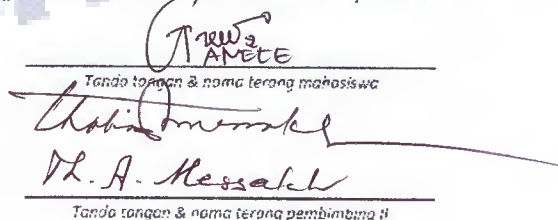 ANECE
Tanda tangan & nama terang mahasiswa
Th. A. Messakh
Tanda tangan & nama terang pembimbing II